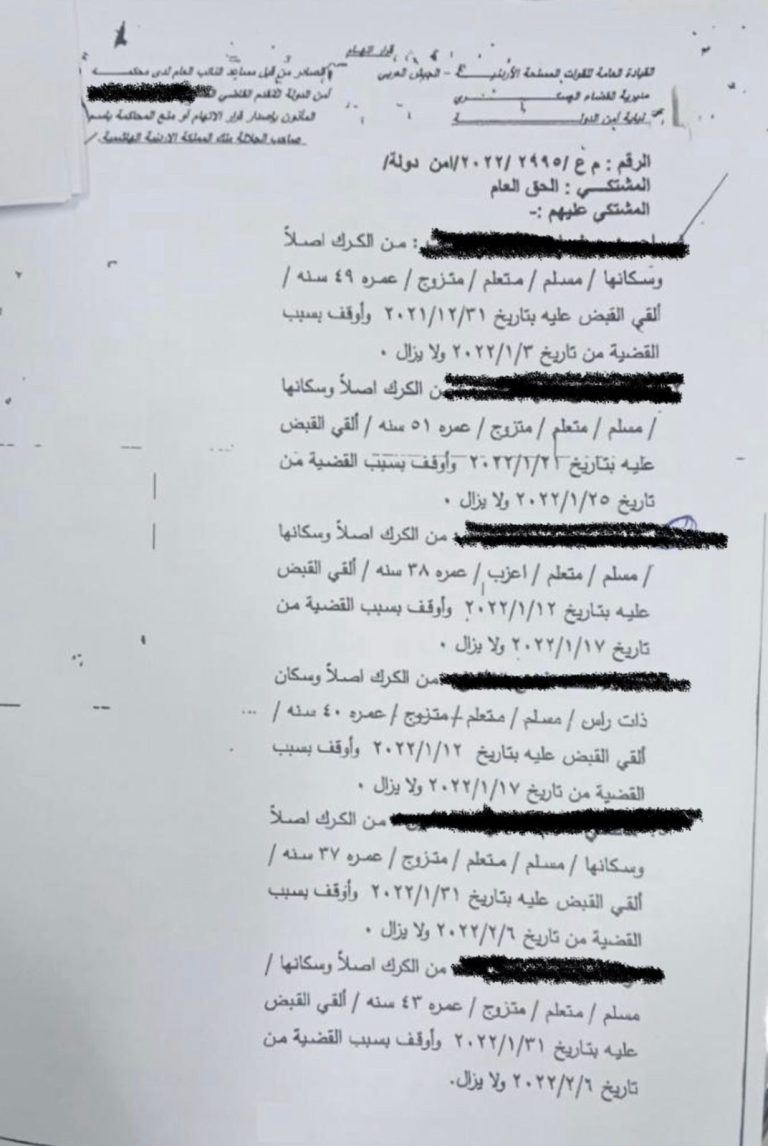 قرار اتهام
القيادة العامة للقوات المسلحة الأردنيـــة - الجيش العربي
مديرية القضاء العسكـــــري
نيابة أمن الدولـــة
والصادر من قبل مساعد النائب العام لدى محكمـــة
أمن الدولة المقدم القاضي
المأذون بإصدار قرار الاتهام أو منع المحاكمة باسم
صاحب الجلالة ملك المملكة الاردنية الهاشمية /
الرقم : م ع /٢٩٩٥ /٢٠٢٢/امن دولة/
المشتكـــي : الحق العام
المشتكى عليهم :-
: من الكرك اصلاً
وسكانها / مسلم / متعلم / متزوج / عمره ٤٩ سنه /
ألقي القبض عليه بتاريخ ٢٠٢١/١٢/٣١ وأوقف بسبب
القضية من تاريخ ٢٠٢٢/١/٣ ولا يزال .
من الكرك اصلاً وسكانها
/ مسلم / متعلم / متزوج / عمره ٥١ سنه / ألقي القبض
عليه بتاريخ ٢٠٢٢/١/٢١ وأوقف بسبب القضية من
تاريخ ٢٠٢٢/١/٢٥ ولا يزال .
من الكرك اصلاً وسكانها
/ مسلم / متعلم / اعزب / عمره ٣٨ سنه / ألقي القبض
عليه بتاريخ ٢٠٢٢/١/١٢ وأوقف بسبب القضية من
تاريخ ٢٠٢٢/١/١٧ ولا يزال .
من الكرك اصلاً وسكان
ذات راس / مسلم / متعلم / متزوج / عمره ٤٠ سنه /
ألقي القبض عليه بتاريخ ٢٠٢٢/١/١٢ وأوقف بسبب
القضية من تاريخ ٢٠٢٢/١/١٧ ولا يزال .
من الكرك اصلاً
وسكانها / مسلم / متعلم / متزوج / عمره ٣٧ سنه /
ألقي القبض عليه بتاريخ ٢٠٢٢/١/٣١ وأوقف بسبب
القضية من تاريخ ٢٠٢٢/٢/٦ ولا يزال .
من الكرك اصلاً وسكانها /
مسلم / متعلم / متزوج / عمره ٤٣ سنه / ألقي القبض
عليه بتاريخ ٢٠٢٢/١/٣١ وأوقف بسبب القضية من
تاريخ ٢٠٢٢/٢/٦ ولا يزال.